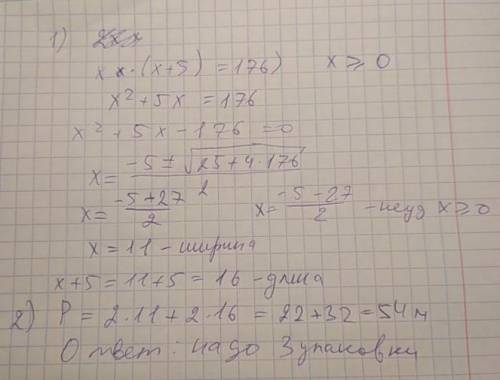 1)
x · (x+5) = 176) x ≥ 0
x² + 5x = 176
x² + 5x - 176 = 0
x = (-5 ± √(25+4·176))/2
x = (-5+27)/2 x = (-5-27)/2 - неуд x ≥ 0
x = 11 - ширина
x+5 = 11+5 = 16 - длина
2) P = 2·11 + 2·16 = 22+32 = 54 м
Ответ: надо 3 упаковки